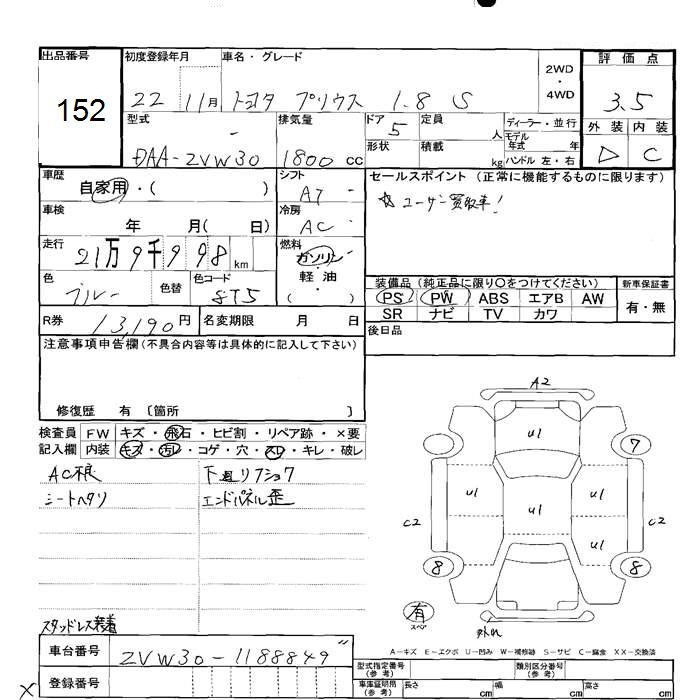 出品番号 初度登録年月 車名・グレード 2WD・4WD 評価点
152 22 11月 トヨタ プリウス 1.8 S 3.5
型式 排気量 ドア 定員 人 ディーラー・並行 外装 内装
DAA-ZVW30 1800 cc 5 形状 積載 kg モデル年式 年 ハンドル 左・右 △ C
車歴 シフト セールスポイント(正常に機能するものに限ります)
自家用・( ) AT ☆ ユーザー買取車!
車検 年 月( 日) 冷房 AC
走行 21万9千998km 燃料 ガソリン・軽油・( )
色 ブルー 色替 色コード 8T5
装備品(純正品に限り○をつけてください) 新車保証書
PS PW ABS エアB AW 有・無
SR ナビ TV カワ
R券 13,190円 名変期限 月 日 後日品
注意事項申告欄(不具合内容等は具体的に記入して下さい)
修復歴 有〔箇所 〕
検査員 FW キズ・飛石・ヒビ割・リペア跡・×要
記入欄 内装 キズ・汚れ・コゲ・穴・スレ・キレ・破レ
AC根 下廻リフショク
シートヘタリ エンドパネル歪
スタッドレス装着
A2
U1
7
U1 U1
U1
C2 C2
U1
8 8
有
スペア
外れ
A-キズ E-エクボ U-凹み W-補修跡 S-サビ C-腐食 XX-交換済
車台番号 ZVW30-1188849
登録番号
型式指定番号(参考) 類別区分番号(参考)
車庫証明用(参考) 長さ cm 幅 cm 高さ cm
×